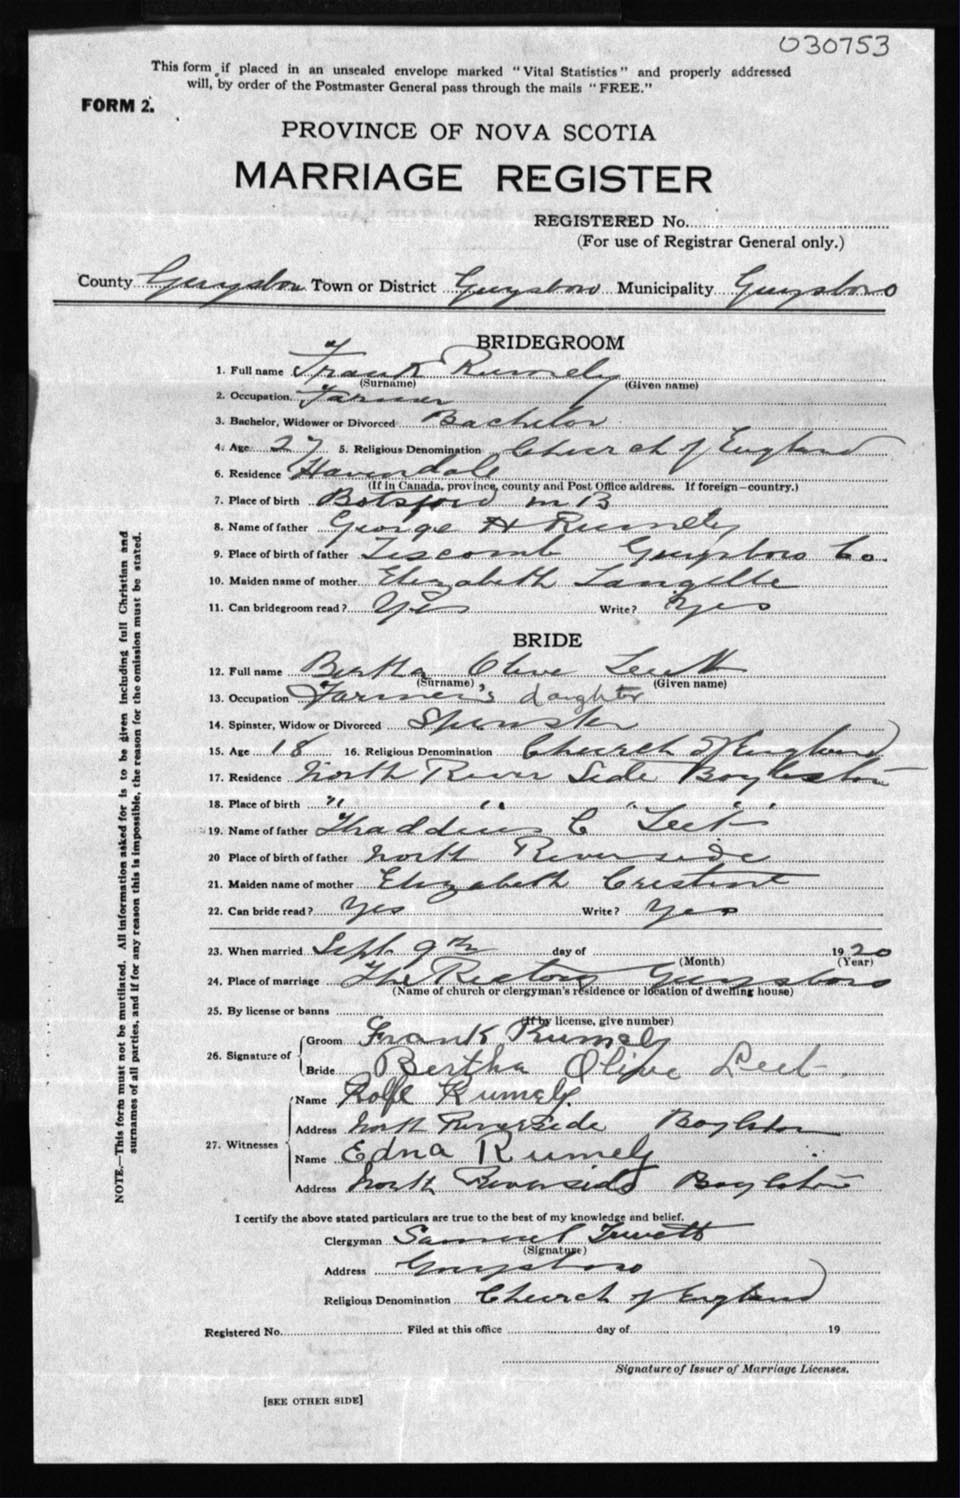 030753
This form if placed in an unsealed envelope marked "Vital Statistics" and properly addressed
will, by order of the Postmaster General pass through the mails "FREE."
FORM 2.
PROVINCE OF NOVA SCOTIA
MARRIAGE REGISTER
REGISTERED No.
(For use of Registrar General only.)
County Guysboro Town or District Guysboro Municipality Guysboro
BRIDEGROOM
1. Full name Frank Rumely
(Surname) (Given name)
2. Occupation Farmer
3. Bachelor, Widower or Divorced Bachelor
4. Age 27 5. Religious Denomination Church of England
6. Residence Havendale
(If in Canada, province, county and Post Office address. If foreign—country.)
7. Place of birth Botsford N B
8. Name of father George H Rumely
9. Place of birth of father Liscomb Guysboro Co.
10. Maiden name of mother Elizabeth Langille
11. Can bridegroom read? Yes Write? Yes
BRIDE
12. Full name Bertha Olive Leet
(Surname) (Given name)
13. Occupation Farmer's daughter
14. Spinster, Widow or Divorced Spinster
15. Age 18 16. Religious Denomination Church of England
17. Residence North River Side Boylston
18. Place of birth " " " "
19. Name of father Thaddius C Leet
20 Place of birth of father North Riverside
21. Maiden name of mother Elizabeth
22. Can bride read? Yes Write? Yes
23. When married Sept. 9th day of 1920
(Month) (Year)
24. Place of marriage The Rectory Guysboro
(Name of church or clergyman's residence or location of dwelling house)
25. By license or banns
(If by license, give number)
26. Signature of Groom Frank Rumely
Bride Bertha Olive Leet.
27. Witnesses Name Rolfe Rumely
Address North Riverside Boylston
Name Edna Rumely
Address North Riverside Boylston
I certify the above stated particulars are true to the best of my knowledge and belief.
Clergyman Samuel Trivett
(Signature)
Address Guysboro
Religious Denomination Church of England
Registered No. Filed at this office day of 19
Signature of Issuer of Marriage Licenses.
[SEE OTHER SIDE]
NOTE.—This form must not be mutilated. All information asked for is to be given including full Christian and
surnames of all parties, and if for any reason this is impossible, the reason for the omission must be stated.